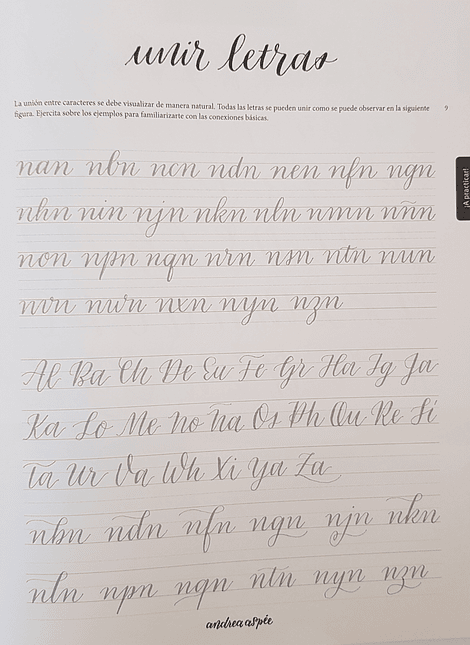 unir letras
La unión entre caracteres se debe visualizar de manera natural. Todas las letras se pueden unir como se puede observar en la siguiente
figura. Ejercita sobre los ejemplos para familiarizarte con las conexiones básicas.
9
¡A practicar!
nan nbn ncn ndn nen nfn ngn
nhn nin njn nkn nln nmn nñn
non npn nqn nrn nsn ntn nun
nvn nwn nxn nyn nzn
Al Ba Ch De Eu Fe Gr Ha Ig Ja
Ka Lo Me No Ña Os Ph Qu Re Si
Ta Ur Va Wh Xi Ya Za
nbn ndn nfn ngn njn nkn
nln npn nqn ntn nyn nzn
andrea aspée